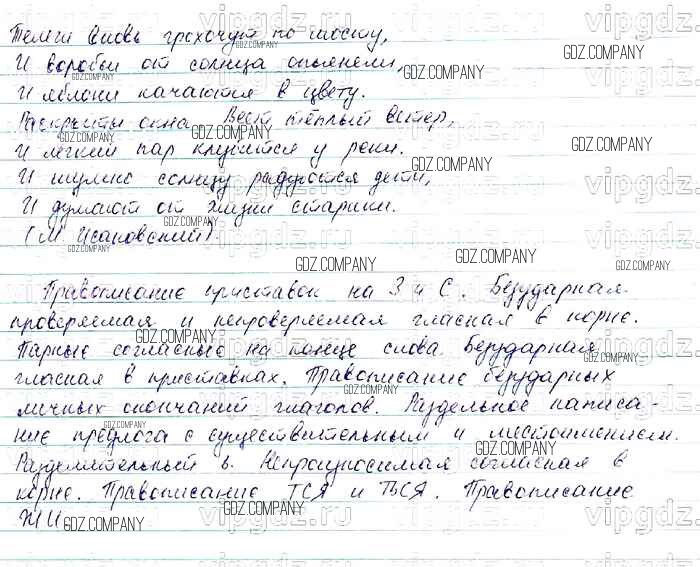 Телеги вновь грохочут по мосту,
И воробьи от солнца опьянели,
И яблони качаются в цвету.
Раскрыты окна. Веет тёплый ветер,
И лёгкий пар клубится у реки.
И шумно солнцу радуются дети,
И думают от жизни старики.
(М. Исаковский)
Правописание приставок на З и С. Безударная
проверяемая и непроверяемая гласная в корне.
Парные согласные на конце слова. Безударная
гласная в приставках. Правописание безударных
личных окончаний глаголов. Раздельное написа-
ние предлога с существительным и местоимением.
Разделительный ь. Непроизносимая согласная в
корне. Правописание ТСЯ и ТЬСЯ. Правописание
ЖИ
GDZ.COMPANY
vipgdz.ru